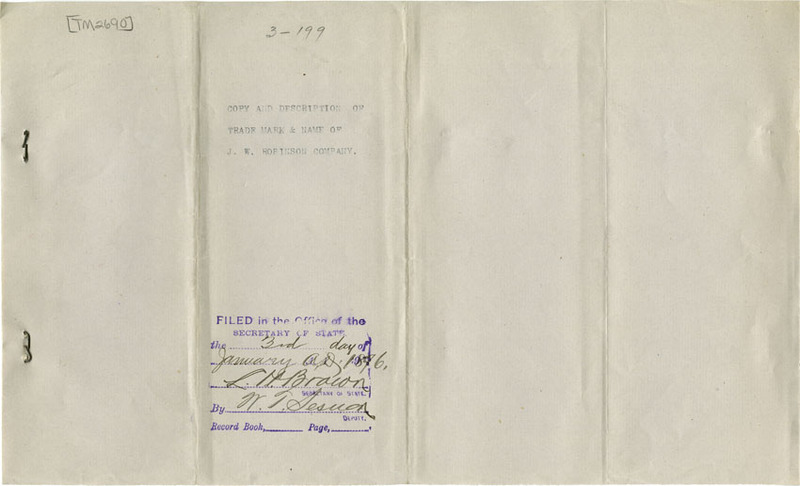 [TM2690]
3-199
COPY AND DESCRIPTION OF
TRADE MARK & NAME OF
J. W. ROBINSON COMPANY.
FILED in the Office of the
SECRETARY OF STATE
the 3rd day of
January A.D. 1896.
L. H. Brown
SECRETARY OF STATE.
By W. T. Sesnon
DEPUTY.
Record Book, Page,